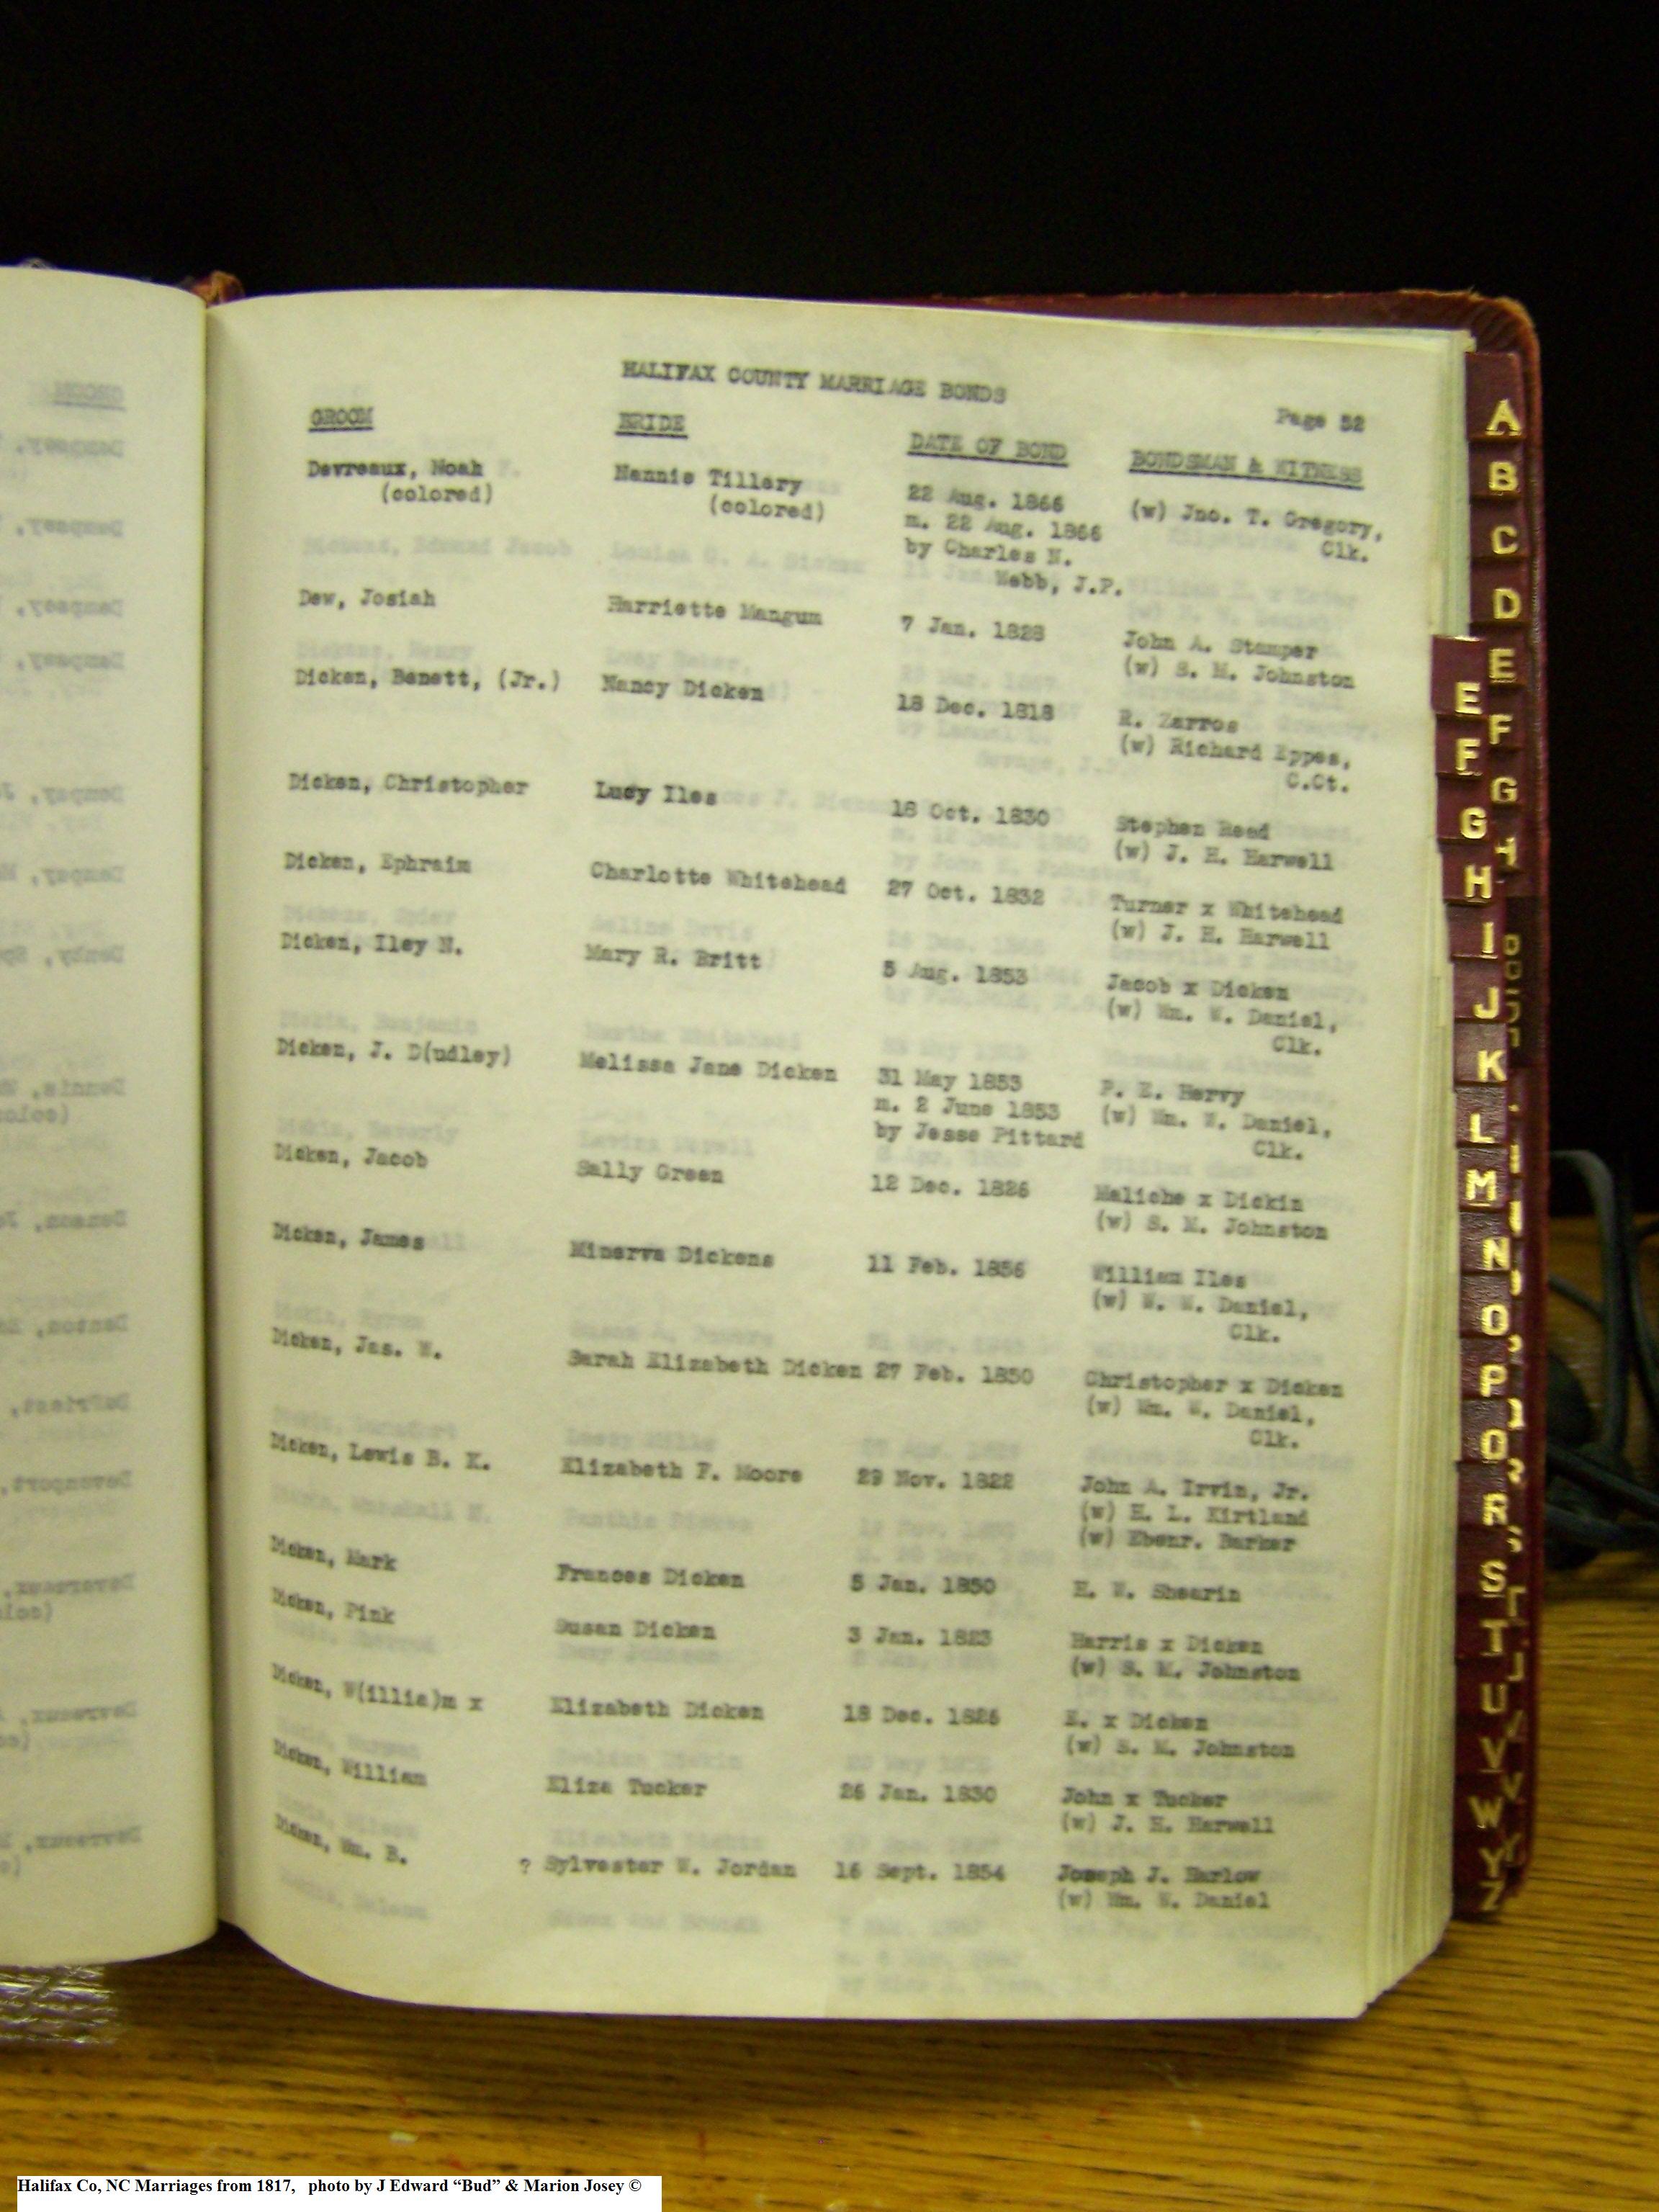 HALIFAX COUNTY MARRIAGE BONDS
Page 52
GROOM BRIDE DATE OF BOND BONDSMAN & WITNESS
Devreaux, Noah Nannie Tillery 22 Aug. 1866 (w) Jno. T. Gregory,
(colored) (colored) m. 22 Aug. 1866 Clk.
by Charles N.
Webb, J.P.
Dew, Josiah Harriette Mangum 7 Jan. 1828 John A. Stamper
(w) S. M. Johnston
Dicken, Benett, (Jr.) Nancy Dicken 18 Dec. 1818 R. Zarros
(w) Richard Eppes,
C.Ct.
Dicken, Christopher Lucy Iles 18 Oct. 1830 Stephen Read
(w) J. H. Harwell
Dicken, Ephraim Charlotte Whitehead 27 Oct. 1832 Turner x Whitehead
(w) J. H. Harwell
Dicken, Iley N. Mary R. Britt 5 Aug. 1853 Jacob x Dicken
(w) Wm. W. Daniel,
Clk.
Dicken, J. D(udley) Melissa Jane Dicken 31 May 1853 P. E. Hervy
m. 2 June 1853 (w) Wm. W. Daniel,
by Jesse Pittard Clk.
Dicken, Jacob Sally Green 12 Dec. 1826 Maliche x Dickin
(w) S. M. Johnston
Dicken, James Minerva Dickens 11 Feb. 1856 William Iles
(w) W. W. Daniel,
Clk.
Dicken, Jas. W. Sarah Elizabeth Dicken 27 Feb. 1850 Christopher x Dicken
(w) Wm. W. Daniel,
Clk.
Dicken, Lewis B. K. Elizabeth F. Moore 29 Nov. 1822 John A. Irvin, Jr.
(w) H. L. Kirtland
(w) Ebenr. Barker
Dicken, Mark Frances Dicken 5 Jan. 1850 H. W. Shearin
Dicken, Pink Susan Dicken 3 Jan. 1823 Harris x Dicken
(w) S. M. Johnston
Dicken, W(illia)m x Elizabeth Dicken 18 Dec. 1826 E. x Dicken
(w) S. M. Johnston
Dicken, William Eliza Tucker 26 Jan. 1830 John x Tucker
(w) J. H. Harwell
Dicken, Wm. B. ? Sylvester W. Jordan 16 Sept. 1854 Joseph J. Harlow
(w) Wm. W. Daniel
A
B
C
D
E
F
G
E
F
G
H
I
J
K
L
M
N
O
P
Q
R
S
T
U
V
W
Y
Z
Halifax Co, NC Marriages from 1817, photo by J Edward “Bud” & Marion Josey ©